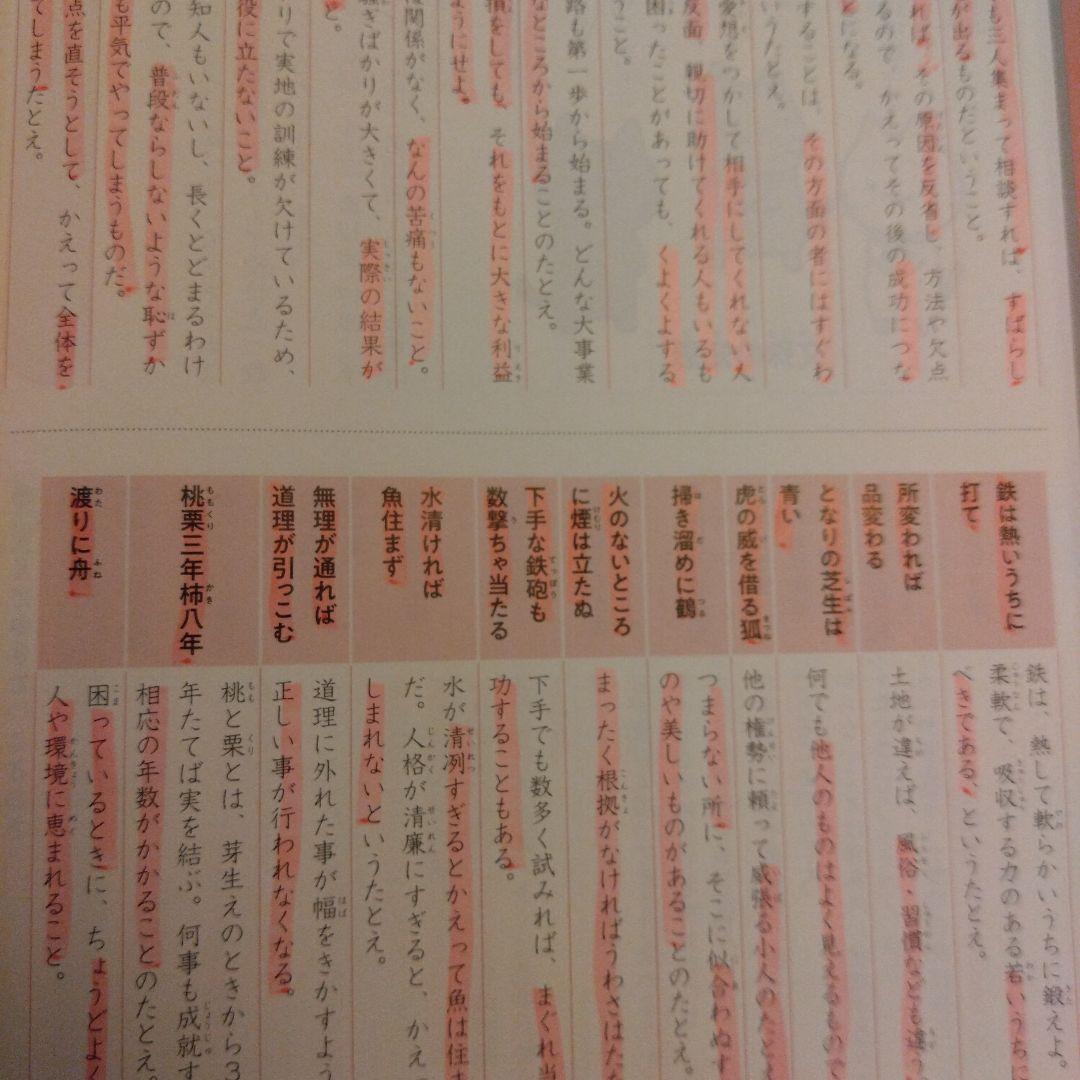 も三人集まって相談すれば、すばらし
が出るものだということ。
れば、その原因を反省し、方法や欠点
るので、かえってその後の成功につな
とになる。
することは、その方面の者にはすぐわ
いうたとえ。
愛想をつかして相手にしてくれない人
反面、親切に助けてくれる人もいるも
困ったことがあっても、くよくよする
うこと。
路も第一歩から始まる。どんな大事業
なところから始まることのたとえ。
損をしても、それをもとに大きな利益
ようにせよ。
関係がなく、なんの苦痛もないこと。
騒ぎばかりが大きくて、実際の結果が
と。
りで実地の訓練が欠けているため、
役に立たないこと。
知人もいないし、長くとどまるわけ
ので、普段ならしないような恥ずか
も平気でやってしまうものだ。
点を直そうとして、かえって全体を
てしまうたとえ。
鉄は熱いうちに
打て
鉄は、熱して軟らかいうちに鍛えよ。
柔軟で、吸収する力のある若いうちに
べきである、というたとえ。
所変われば
品変わる
土地が違えば、風俗・習慣なども違う
となりの芝生は
青い
何でも他人のものはよく見えるもので
虎の威を借る狐
他の権勢に頼って威張る小人のたとえ
掃き溜めに鶴
つまらない所に、そこに似合わぬす
のや美しいものがあることのたとえ。
火のないところ
に煙は立たぬ
まったく根拠がなければうわさはた
下手な鉄砲も
数撃ちゃ当たる
下手でも数多く試みれば、まぐれ当
功することもある。
水清ければ
魚住まず
水が清冽すぎるとかえって魚は住ま
だ。人格が清廉にすぎると、かえ
しまれないというたとえ。
無理が通れば
道理が引っこむ
道理に外れた事が幅をきかすよう
正しい事が行われなくなる。
桃栗三年柿八年
桃と栗とは、芽生えのときから3
年たてば実を結ぶ。何事も成就す
相応の年数がかかることのたとえ。
渡りに舟
困っているときに、ちょうどよく
人や環境に恵まれること。